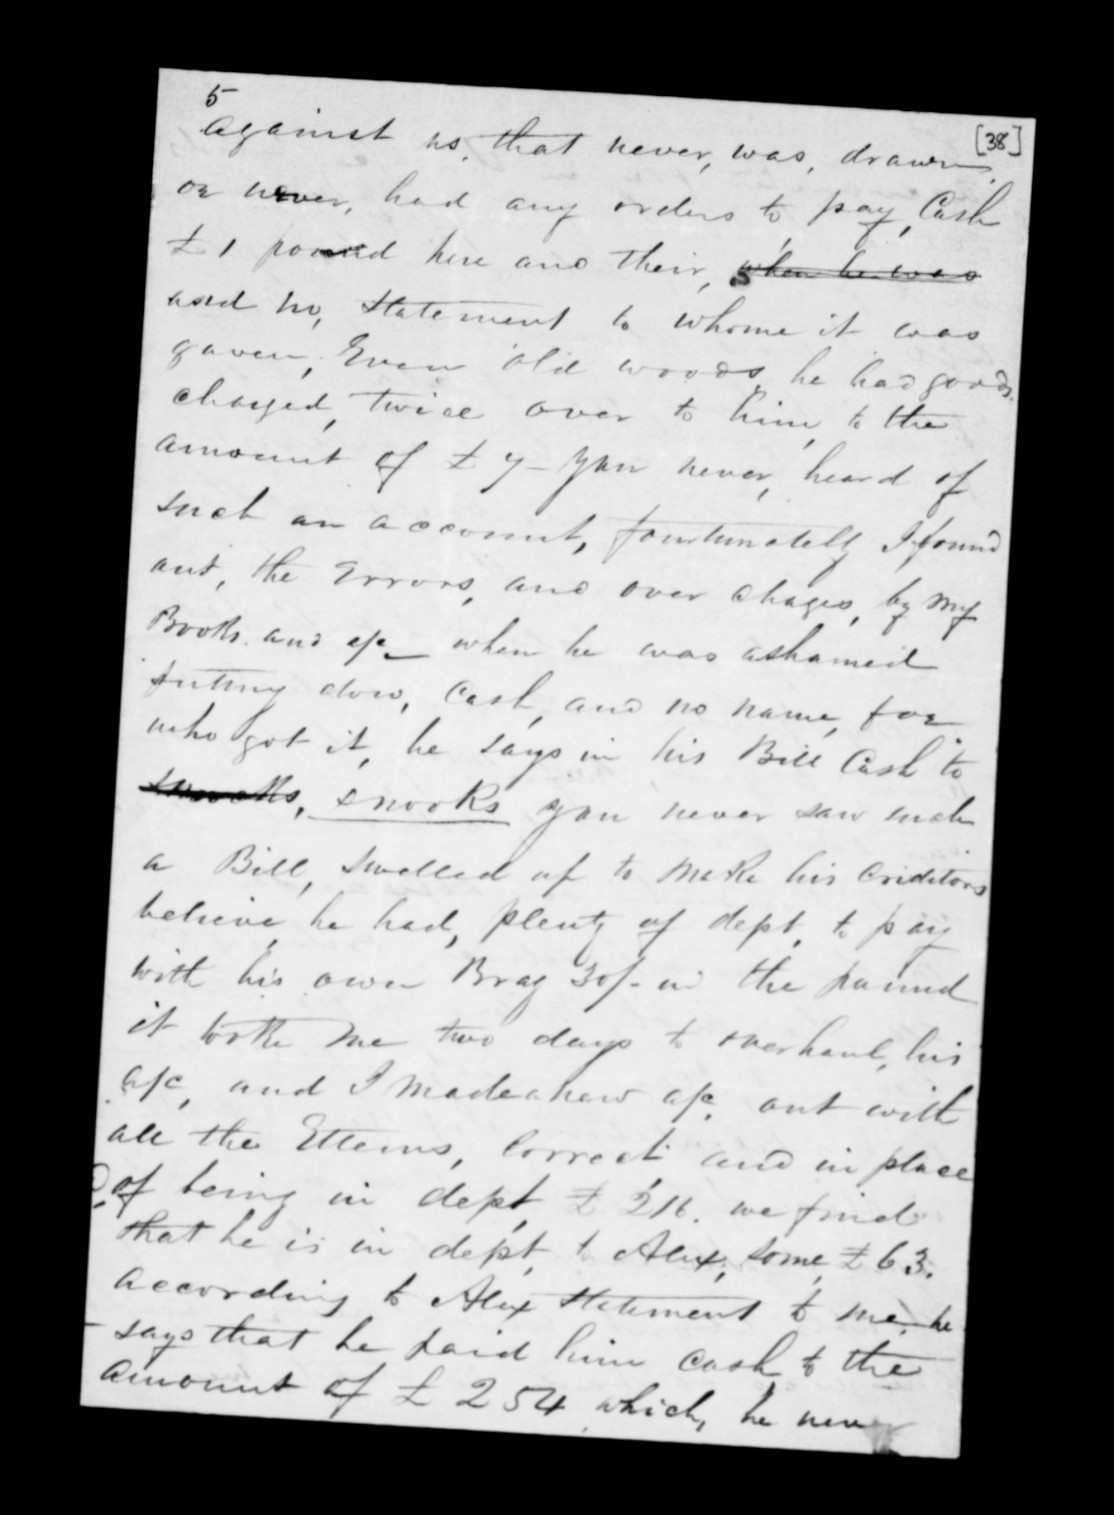 5
[38]
against us, that never, was, drawn,
or never, had any orders to, pay, Cash
£1 pound here and their, when he was
asud no, statement to whome it was
gaven, Even old woods, he had goods
charged, twice over to him, to the
amount of £7 - you never, heard of
such an account, fourtunatelly I found
out, the Errors, and over chages, by my
Books. and a/c when he was ashamed
putting dow, Cash, and no name, for
who got it, he says in his Bill Cash to
snooks, snooks you never saw such
a Bill, swelled up to make his Criditors
believe, he had, plenty of dept, to pay
with his own Brag 30/- in the pound
it tooke me two days to overhaul, his
a/c, and I made a new a/c, out with
all the Ettems, Correct and in place
of being in dept, £ 216. we find
that he is in dept, to Alex, some, £63.
according to Alex statement to me, he
says that he paid him cash, to the
amount of £254 which, he never